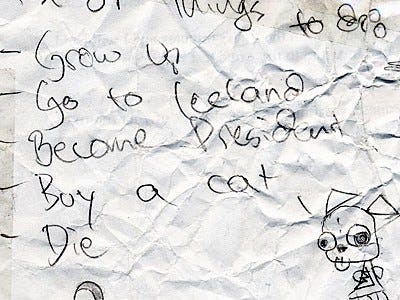 of Things to
- Grow Up
- Go to Iceland
- Become President
- Buy a cat
- Die